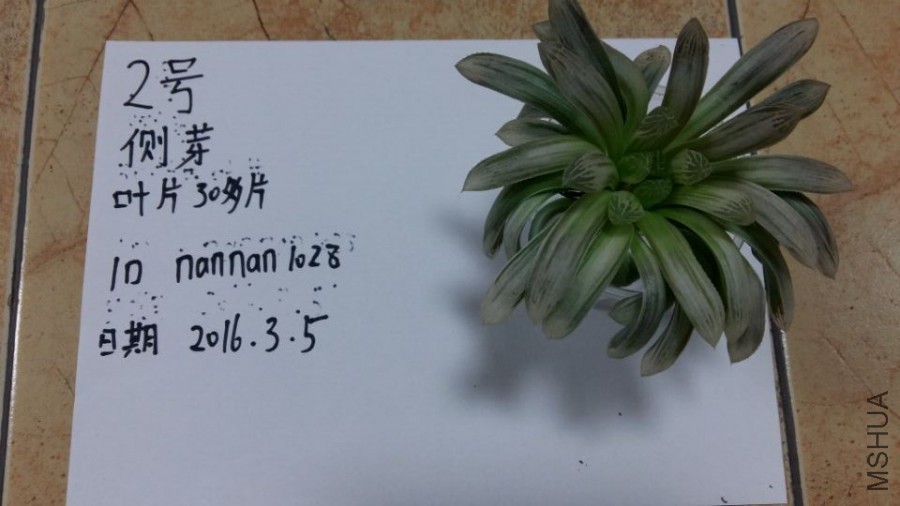 2号
侧芽
叶片30多片
ID nannan1028
日期 2016.3.5
MSHUA